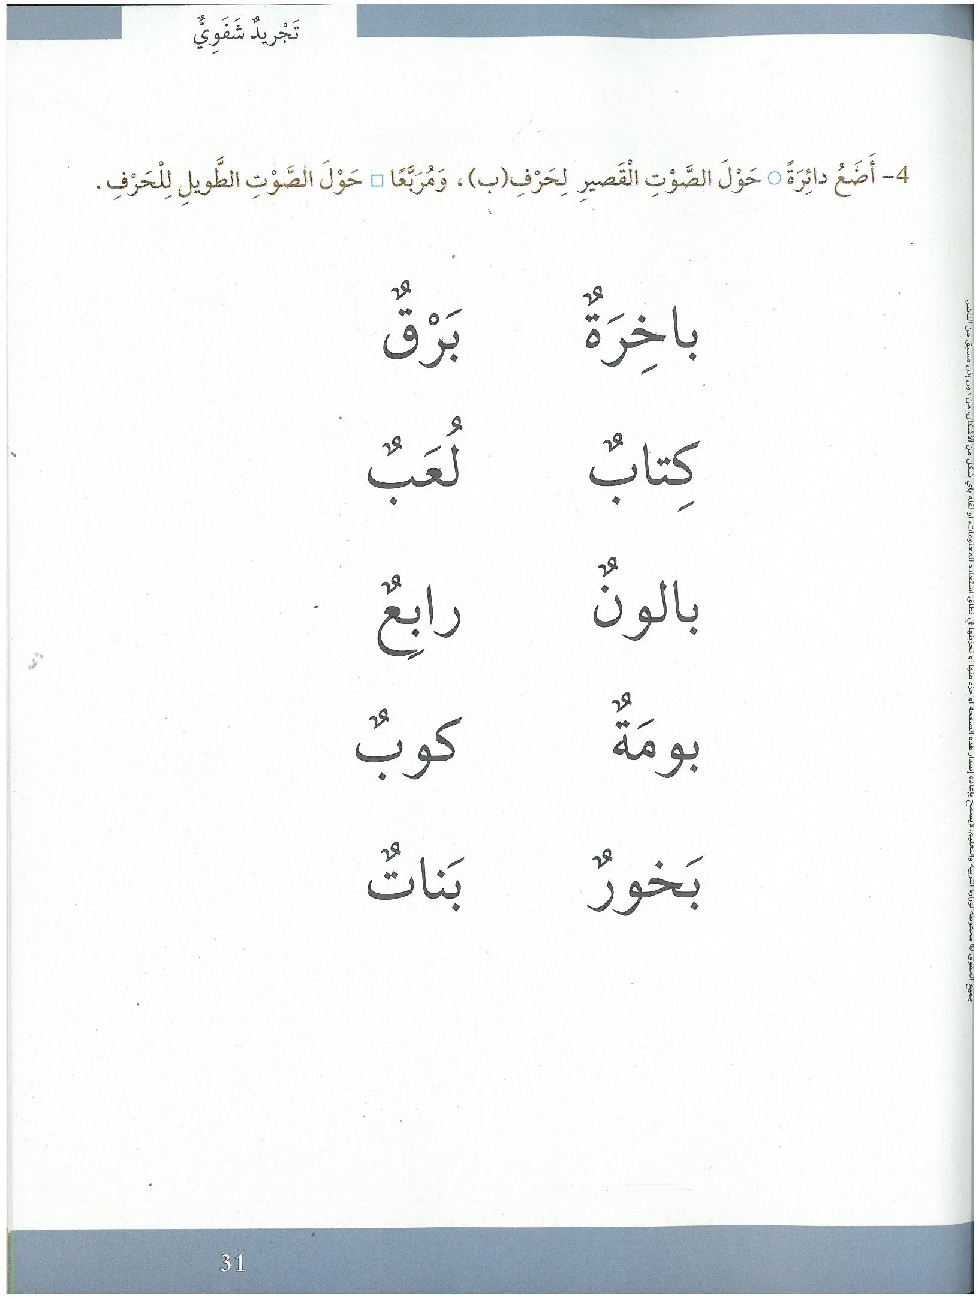 تَجْريدٌ شَفَوِيٌّ
4- أَضَعُ دائِرَةً ○ حَوْلَ الصَّوْتِ الْقَصيرِ لِحَرْفِ(ب)، وَمُرَبَّعًا □ حَوْلَ الصَّوْتِ الطَّويلِ لِلْحَرْفِ.
باخِرَةٌ بَرْقٌ
كِتابٌ لُعَبٌ
بالونٌ رابِعٌ
بومَةٌ كوبٌ
بَخورٌ بَناتٌ
31